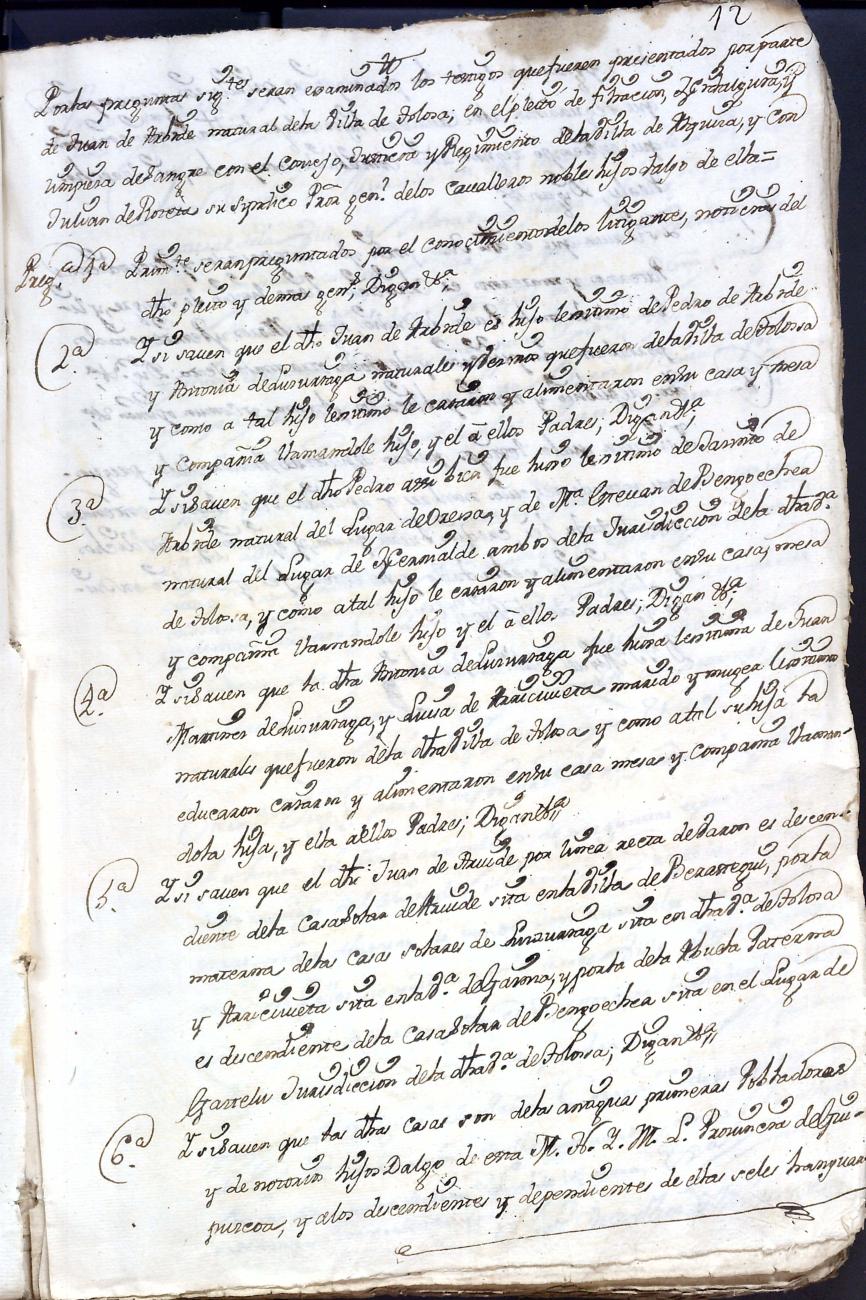 12
Por las preguntas sig.tes seran examinados los testigos que fueren presentados por parte
de Juan de Arbide natural de la Villa de Tolosa; en el pleito de filiacion, Hidalguia, y
limpieza de sangre con el Consejo, Justicia y Regimiento de la Villa de, y con
Julian de su Syndico Pror gen.l de los cavalleros nobles hijos dalgo de ella=
Preg.a 1.a Prim.te seran preguntados por el conocimiento de los litigantes, noticias del
dho pleito y demas gen.s; Digan &.a
2.a Y si saven que el dho Juan de Arbide es hijo lexitimo de Pedro de Arbide
y Antonia de Lizurraga naturales y vecinos que fueron de la Villa de Tolossa
y como a tal hijo lexitimo le criaron y alimentaron en su casa y mesa
y compañia llamandole hijo, y el à ellos Padres; Digan &.a
3.a Y si saven que el dho Pedro assi bien fue hijo lexitimo de de
Arbide natural del Lugar de Orexa, y de M.a Estevan de Bengoechea
natural del Lugar de ambos de la Jurisdiccion de la dha V.a
de Tolosa, y como a tal hijo le criaron y alimentaron en su casa, mesa
y compañia llamandole hijo y el à ellos Padres; Digan &.a
4.a Y si saven que la dha Antonia de Lizurraga fue hija lexitima de Juan
Martinez de Lizurraga, y Luisa de marido y muger lexitimos
naturales que fueron de la dha Villa de Tolosa y como a tal su hija la
educaron criaron y alimentaron en su casa mesa y compañia llaman-
dola hija, y ella a ellos Padres; Digan &.a
5.a Y si saven que el dho Juan de Arvide por linea recta de Varon es descen-
diente de la Casa Solar de Arvide sita en la Villa de Berastegui, por la
materna de las casas solares de Lizurraga sita en dha V.a de Tolosa
y sita en la V.a de, y por la de la Abuela Paterna
es descendiente de la Casa Solar de Bengoechea sita en el Lugar de
Gaztelu Jurisdiccion de la dha V.a de Tolossa; Digan &.a
6.a Y si saven que las dhas casas son de las antiguas primeras Pobladoras
y de notorios hijos Dalgo de esta M. N. Y M. L. Provincia de Gui-
puzcoa, y a los descendientes y dependientes de ellas se les han guar-